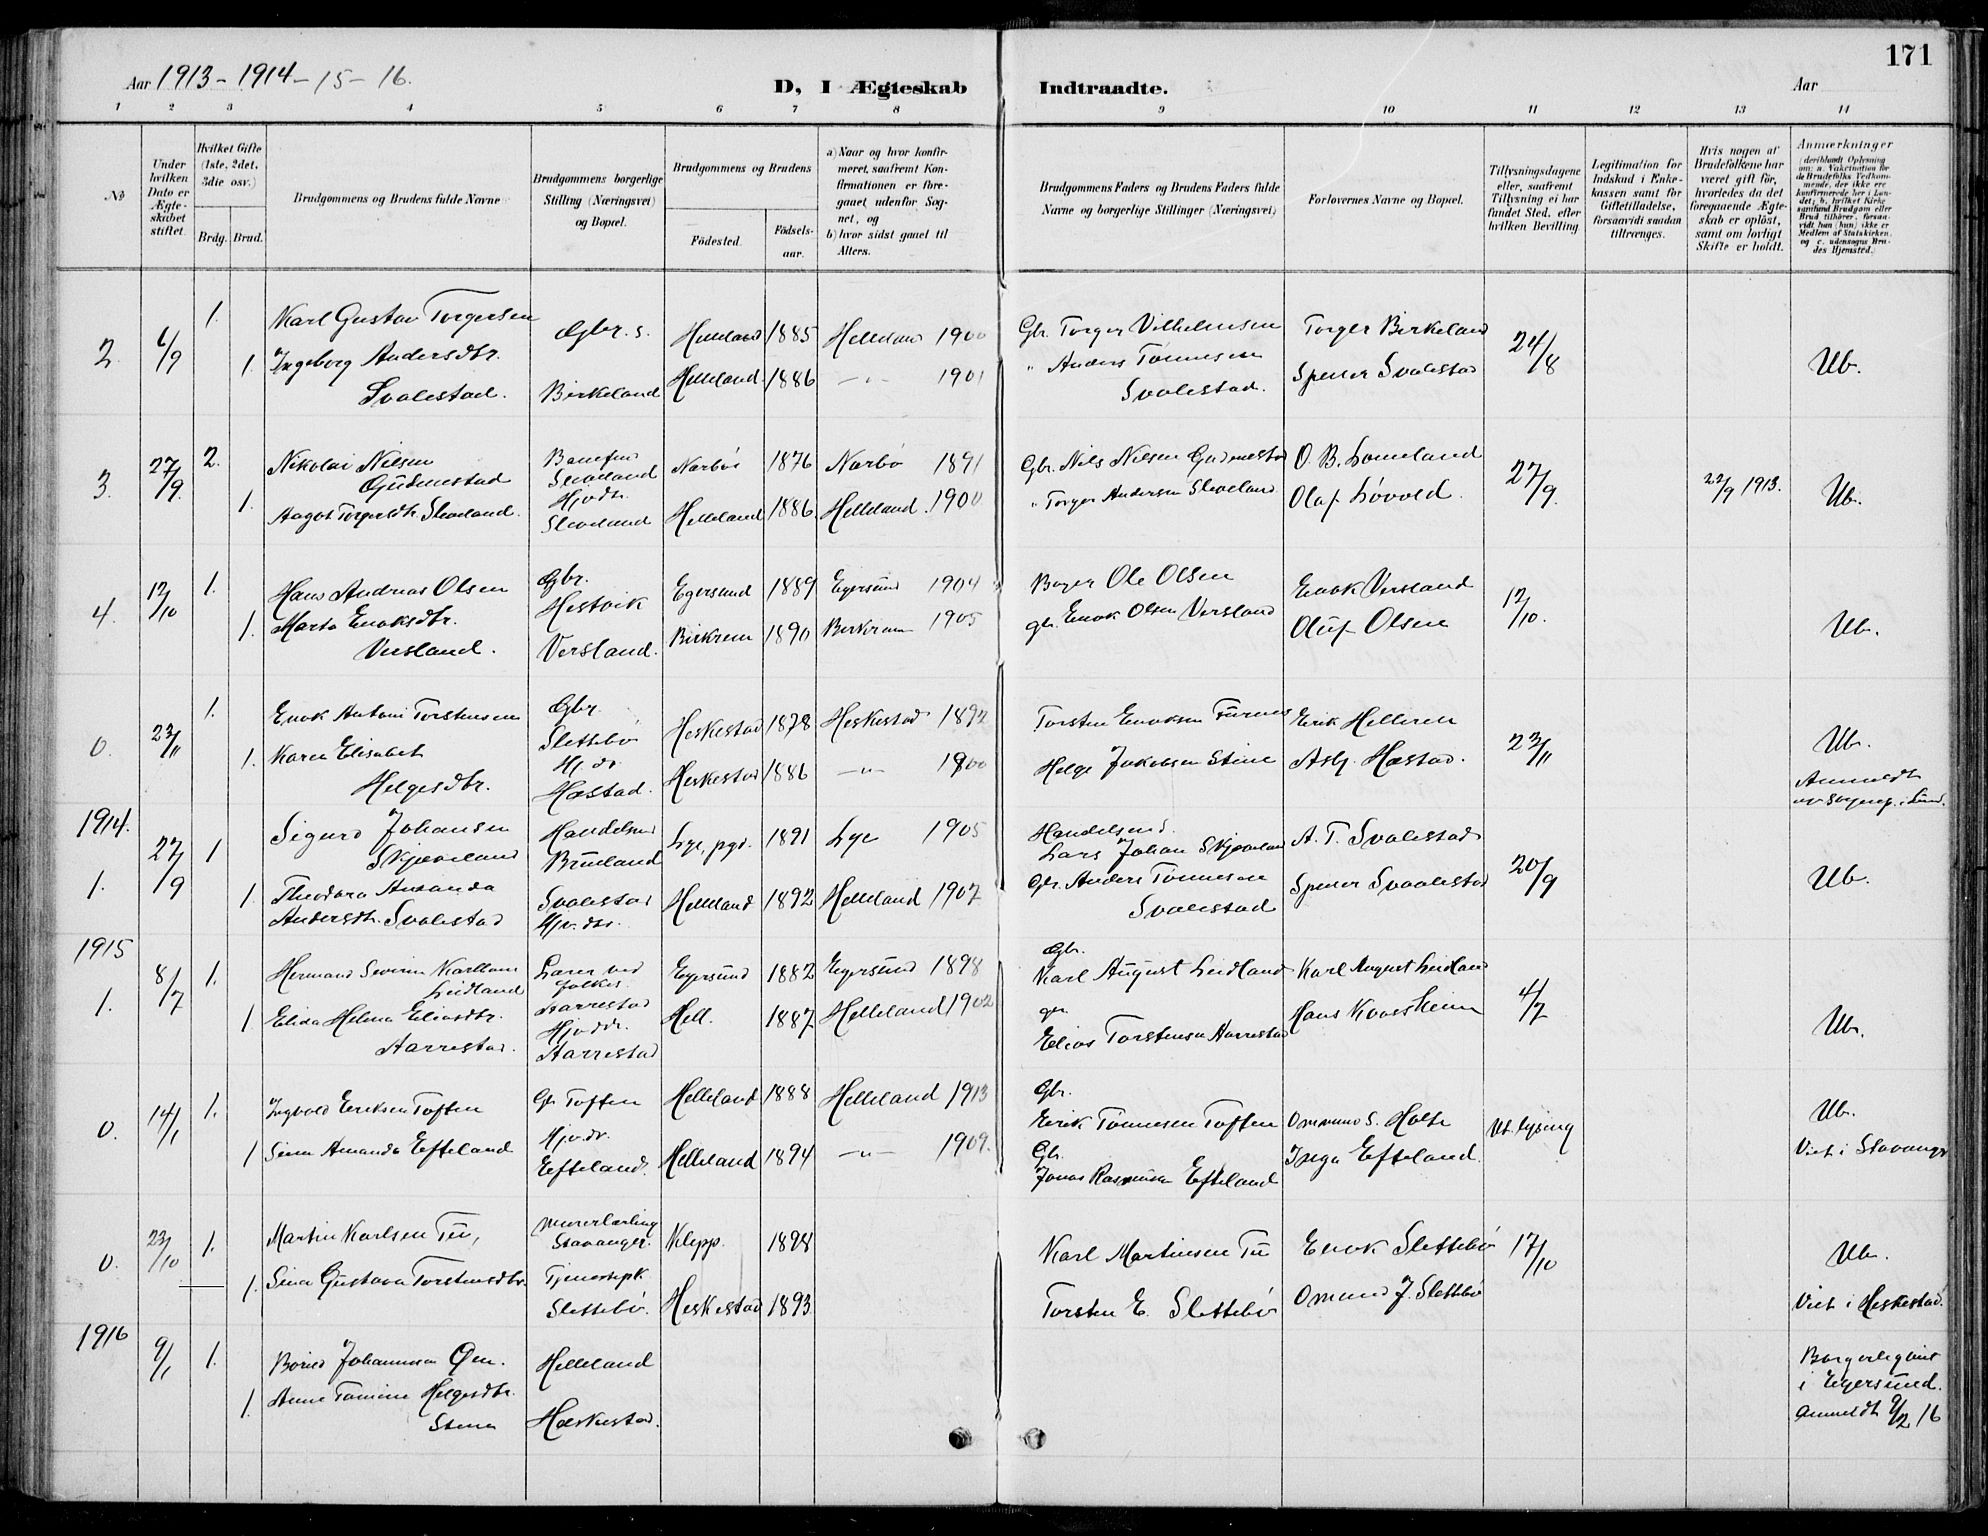 Aar 1913 - 1914 - 15 - 16.
D, I Ægteskab Indtraadte.
Aar
171
1 2 3 4 5 6 7 8 9 10 11 12 13 14
No
Under hvilken Dato er Ægteskabet stiftet.
Hvilket Gifte (1ste, 2det, 3die osv.)
Brdg. Brud.
Brudgommens og Brudens fulde Navne
Brudgommens borgerlige Stilling (Næringsvei) og Bopæl.
Brudgommens og Brudens
Fødested. Fødselsaar.
a) Naar og hvor konfirmeret, saafremt Konfirmationen er foregaaet udenfor Sognet, og
b) hvor sidst gaaet til Alters.
Brudgommens Faders og Brudens Faders fulde Navne og borgerlige Stillinger (Næringsvei)
Forlovernes Navne og Bopæl.
Tillysningsdagene eller, saafremt Tillysning ei har fundet Sted, efter hvilken Bevilling
Legitimation for Indskud i Enkekassen samt for Giftetilladelse, forsaavidt saadan tiltrænges.
Hvis nogen af Brudefolkene har været gift før, hvorledes da det foregaaende Ægteskab er opløst, samt om lovligt Skifte er holdt.
Anmærkninger
(deriblandt Oplysning om: a. Vaccination for de Brudefolks Vedkommende, der ikke ere konfirmerede her i Landet; b. hvilket Kirkesamfund Brudgom eller Brud tilhører, forsaavidt han (hun) ikke er Medlem af Statskirken, og c. udensogns Brudes Hjemsted.)
2. 6/9 1. Karl Gustav Torgersen Gbr. s. Helleland 1885 Helleland 1900 Gbr. Torger Vilhelmsen Torger Birkeland 24/8
1. Ingeborg Andersdtr. Helleland. 1886 — " — 1901 " Anders Tønnesen Speser Svalestad Ub.
Svalestad. Birkeland Svalestad.
3. 27/9. 2. Nikolai Nilsen Nærbø 1876 Nærbø 1891 Gbr. Nils Nilsen Gudmestad O. B. Lomeland 27/9. 22/9 1913. Ub.
Gudmestad Sleveland Hjvdr.
1. Aagot Torgersdtr. Sleveland. Sleveland Helleland 1886. Helleland. 1900. " Torger Andersen Sleveland Olaf Løvold.
4. 12/10 1. Hans Andreas Olsen Gbr. Egersund 1889 Egersund 1904 Ole Olsen Enok Versland 12/10.
1. Marta Enoksdtr. Hestvik Birkrem 1890 Birkrem 1905 gbr. Enok Olsen Versland Oluf Olsen Ub.
Versland. Versland.
0. 23/11 1. Enok Antoni Torstensen Gbr. Slettebø Heskestad 1878 Heskestad 1892 Torsten Enoksen Furnes Erik Helleren 23/11 Ub.
1. Karen Elisabet Hjvdr. Heskestad 1886 — " — 1900 Helge Jakobsen Stene Asbj. Hæstad. Anmeldt
Helgesdtr. Hæstad.
1914.
1. 27/9 1 Sigurd Johansen Handelsmd Lye, pgd. 1891 Lye 1905 Handelsmd. A. T. Svalestad 20/9 Ub.
Skjæveland Brueland Lars Johan Skjæveland
1. Theodora Amanda Svalestad Helleland 1892 Helleland 1907 Gbr. Anders Tønnesen Speser Svaalestad
Andersdtr. Svalestad Hjv. dtr. Svalestad
1915
1. 8/7 1. Hermand Severin Karlsen Lærer ved Egersund 1882 Egersund 1898 Gbr. Karl August Leidland Karl August Leidland 4/7
Leidland folkes.
1 Elida Helena Eliasdtr. Aarrestad Hjvdr. Hell. 1887 Helleland 1902 gbr. Hans Kvassheim Ub.
Aarrestad. Aarrestad Elias Torstensen Aarrestad
0. 14/1 1. Ingvald Eriksen Toften Gbr Toften Helleland 1888 Helleland 1913 Gbr. Erik Tønnesen Toften Ommund S. Holte Ut. lysing Ub.
1 Sina Amanda Efteland Hjvdr. Efteland. Helleland 1894 — " — 1909. Gbr. Jonas Rasmusen Efteland Inga Efteland Viet i Stavanger
0. 23/10 1. Martin Karlsen Tu, Murerlærling Stavanger. Klepp. 1894 Karl Martinsen Tu Enok Slettebø 17/10 Ub.
1. Sina Gustava Torstensdtr. Tjenestepk Slettebø. Heskestad 1893 Torsten E. Slettebø Omund J. Slettebø Viet i Heskestad.
1916
9/1 1. Børud Johannesen Øen. Helleland Borgerlig viet i Egersund.
1. Anne Tomine Helgesdtr. Hæskestad. Anmeldt 9/2 16
Stene